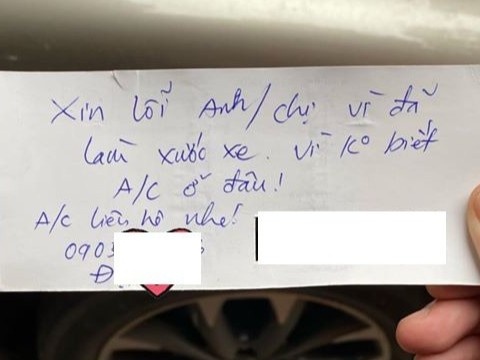 Xin lỗi Anh/chị vì đã
làm xước xe. vì Ko biết
A/C ở đâu!
A/C liên hệ nhé!
0903
Đ